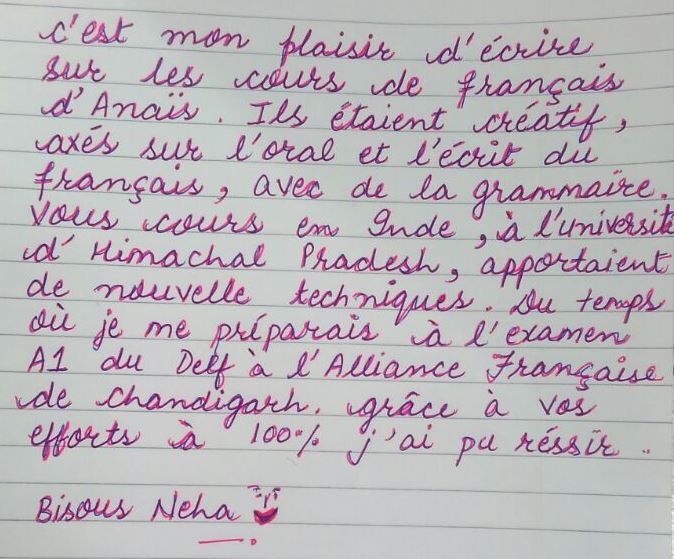 c'est mon plaisir d'écrire
sur les cours de français
d'Anaïs. Ils étaient créatif,
axés sur l'oral et l'écrit du
français, avec de la grammaire.
Vous cours en Inde, à l'université
d'Himachal Pradesh, apportaient
de nouvelle techniques. Du temps
où je me préparais à l'examen
A1 du Delf à l'Alliance Française
de Chandigarh. grâce à vos
efforts à 100% j'ai pu réssir.
Bisous Neha